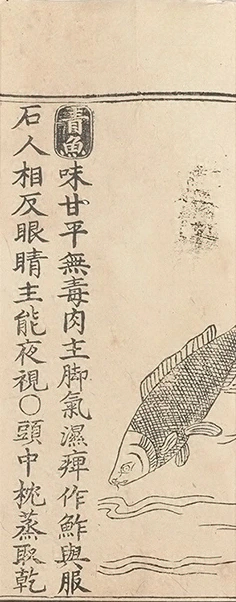 青魚味甘平無毒肉主脚氣濕痺作鮓與服
石人相反眼睛主能夜視〇頭中枕蒸取乾